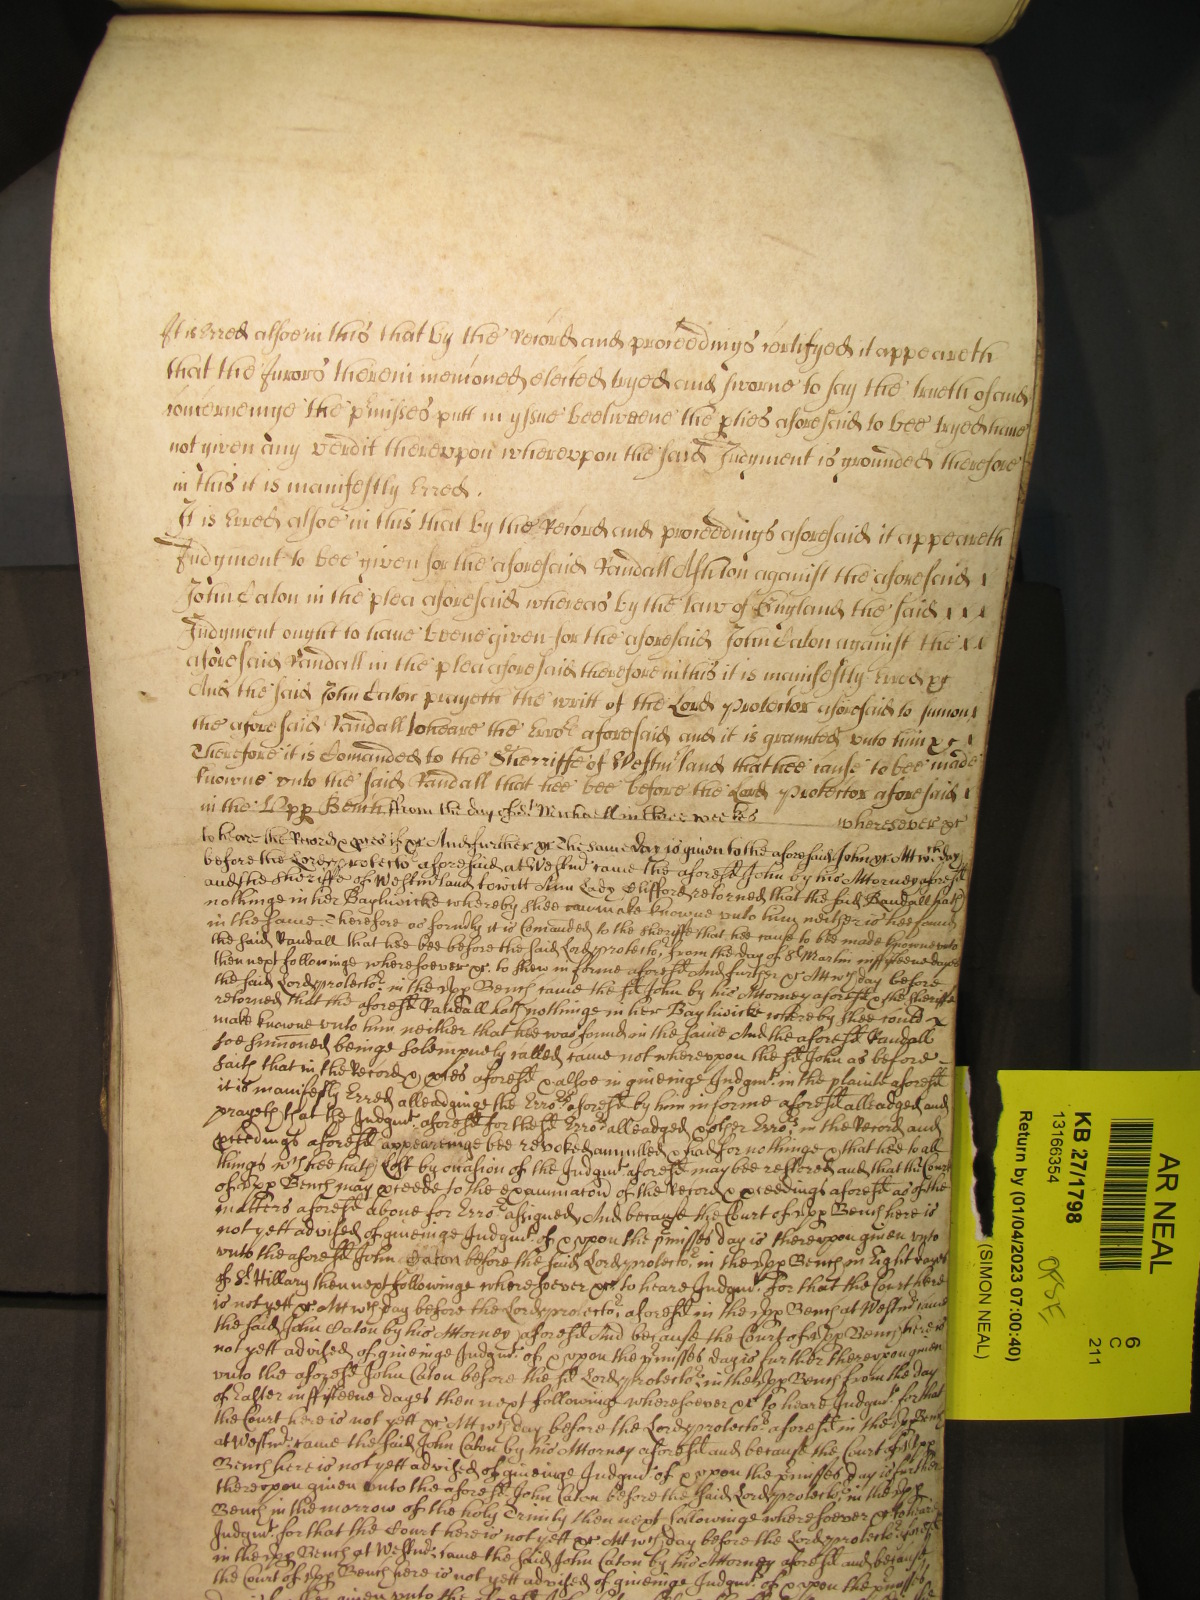 It is Erred alsoe in this that by the Record and proceedings certifyed it appeareth
that the Jurors therein menconed elected tryed and sworne to say the trueth of and
concerneinge the pmisses putt in yssue beetweene the pties aforesaid to bee tryed have
not given any verdit therevpon wherevpon the said Judgment is grounded therefore
in this it is manifestly Erred .
It is Erred alsoe in this that by the Record and proceedings aforesaid it appeareth
Judgment to bee given for the aforesaid Randall Ashton against the aforesaid
John Caton in the plea aforesaid whereas by the law of England the said
Judgment ought to haue beene given for the aforesaid John Caton against the
aforesaid Randall in the plea aforesaid therefore in this it is manifestly Erred &c
And the said John Caton prayeth the writt of the Lord Protector aforesaid to sumon
the aforesaid Randall to heare the Erro&rs aforesaid and it is graunted vnto him &c
Therefore it is Comanded to the Sherriffe of Westm'land that hee cause to bee made
knowne vnto the said Randall that hee bee before the Lord Protector aforesaid
in the Vpp Bench From the day of St Michaell in three weekes wheresoever &c
to heare the Record & pces if &c And further &c The same day is given to the aforesaid John &c Att wch day
before the Lord protector aforesaid at Westm' came the aforesd John by his Attorney aforesd
and the Sheriffe of Westm'land to witt Ann Lady Clifford retorned that the said Randall hath
nothinge in her Baylywicke whereby shee can make knowne vnto him neither is hee found
in the same Therefore as formly it is Comanded to the Sheriffe that hee cause to bee made knowne vnto
the said Randall that hee bee before the said Lord protector from the day of St Martin in fifteene dayes
then next followinge wheresoever &c to shew in forme aforesd And further &c Att wch day before
the said Lord protector in the Vpp Bench came the sd John by his Attorney aforesd & the Sheriffe
retorned that the aforesd Randall hath nothinge in her Baylywicke whereby shee could
make knowne vnto him neither that hee was found in the same And the aforesd Randall
soe sumoned beinge solempnely called came not wherevpon the sd John as before
saith that in the Record & pces aforesd & alsoe in giveinge Judgmt in the plainte aforesd
it is manifestly Erred alleadginge the Errors aforesd by him in forme aforesd alleadged and
prayeth that the Judgmt aforesd for these Errors alleadged & other Errors in the Record and
pceedings aforesd appeareinge bee revoked annulled & had for nothinge & that hee to all
things wch hee hath lost by occasion of the Judgmt aforesd may bee restored and that the Court
of Vpp Bench may pceede to the examinacon of the Record & pceedings aforesd as of the
matters aforesd aboue for Errors assigned And because the Court of Vpp Bench here is
not yett advised of giveinge Judgmt of & vpon the pmisses day is therevpon given vnto
vnto the aforesd John Caton before the said Lord protector in the Vpp Bench in Eight dayes
of St Hillary then next followinge wheresoever &c to heare Judgmt For that the Court here
is not yett &c Att wch day before the Lord protector aforesd in the Vpp Bench at Westm' came
the said John Caton by his Attorney aforesd And because the Court of Vpp Bench here is
not yett advised of giveinge Judgmt of & vpon the pmisses day is further therevpon given
vnto the aforesd John Caton before the sd Lord protector in the Vpp Bench from the day
of Easter in fifteene dayes then next followinge wheresoever &c to heare Judgmt for that
the Court here is not yett &c Att wch day before the Lord protector aforesd in the Vpp Bench
at Westm' came the said John Caton by his Attorney aforesd and because the Court of Vpp
Bench here is not yett advised of giveinge Judgmt of & vpon the pmisses day is further
therevpon given vnto the aforesd John Caton before the said Lord protector in the Vpp
Bench in the morrow of the holy Trinity then next followinge wheresoever &c to heare
Judgmt for that the Court here is not yett &c Att wch day before the Lord protector aforesd
in the Vpp Bench at Westm' came the said John Caton by his Attorney aforesd and because
the Court of Vpp Bench here is not yett advised of giveinge Judgmt of & vpon the pmisses
given vnto the
AR NEAL
6
C
211
KB 27/1798
13166354
Return by (01/04/2023 07:00:40)
(SIMON NEAL)